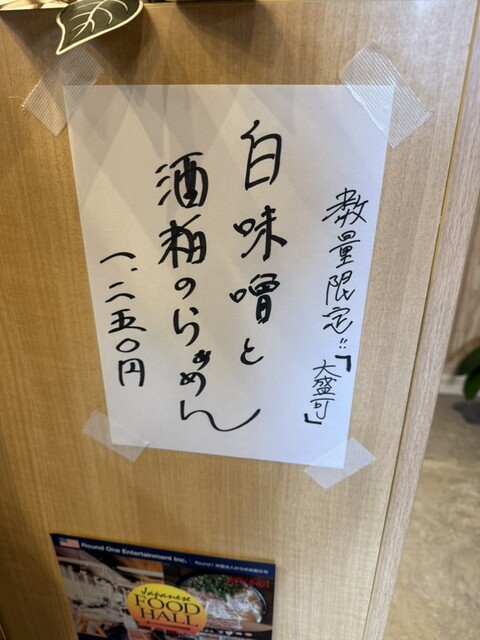 数量限定!!「大盛可」
白味噌と
酒粕のらぁめん
一、二五〇円
Round One Entertainment Inc.
Japanese
FOOD
HALL